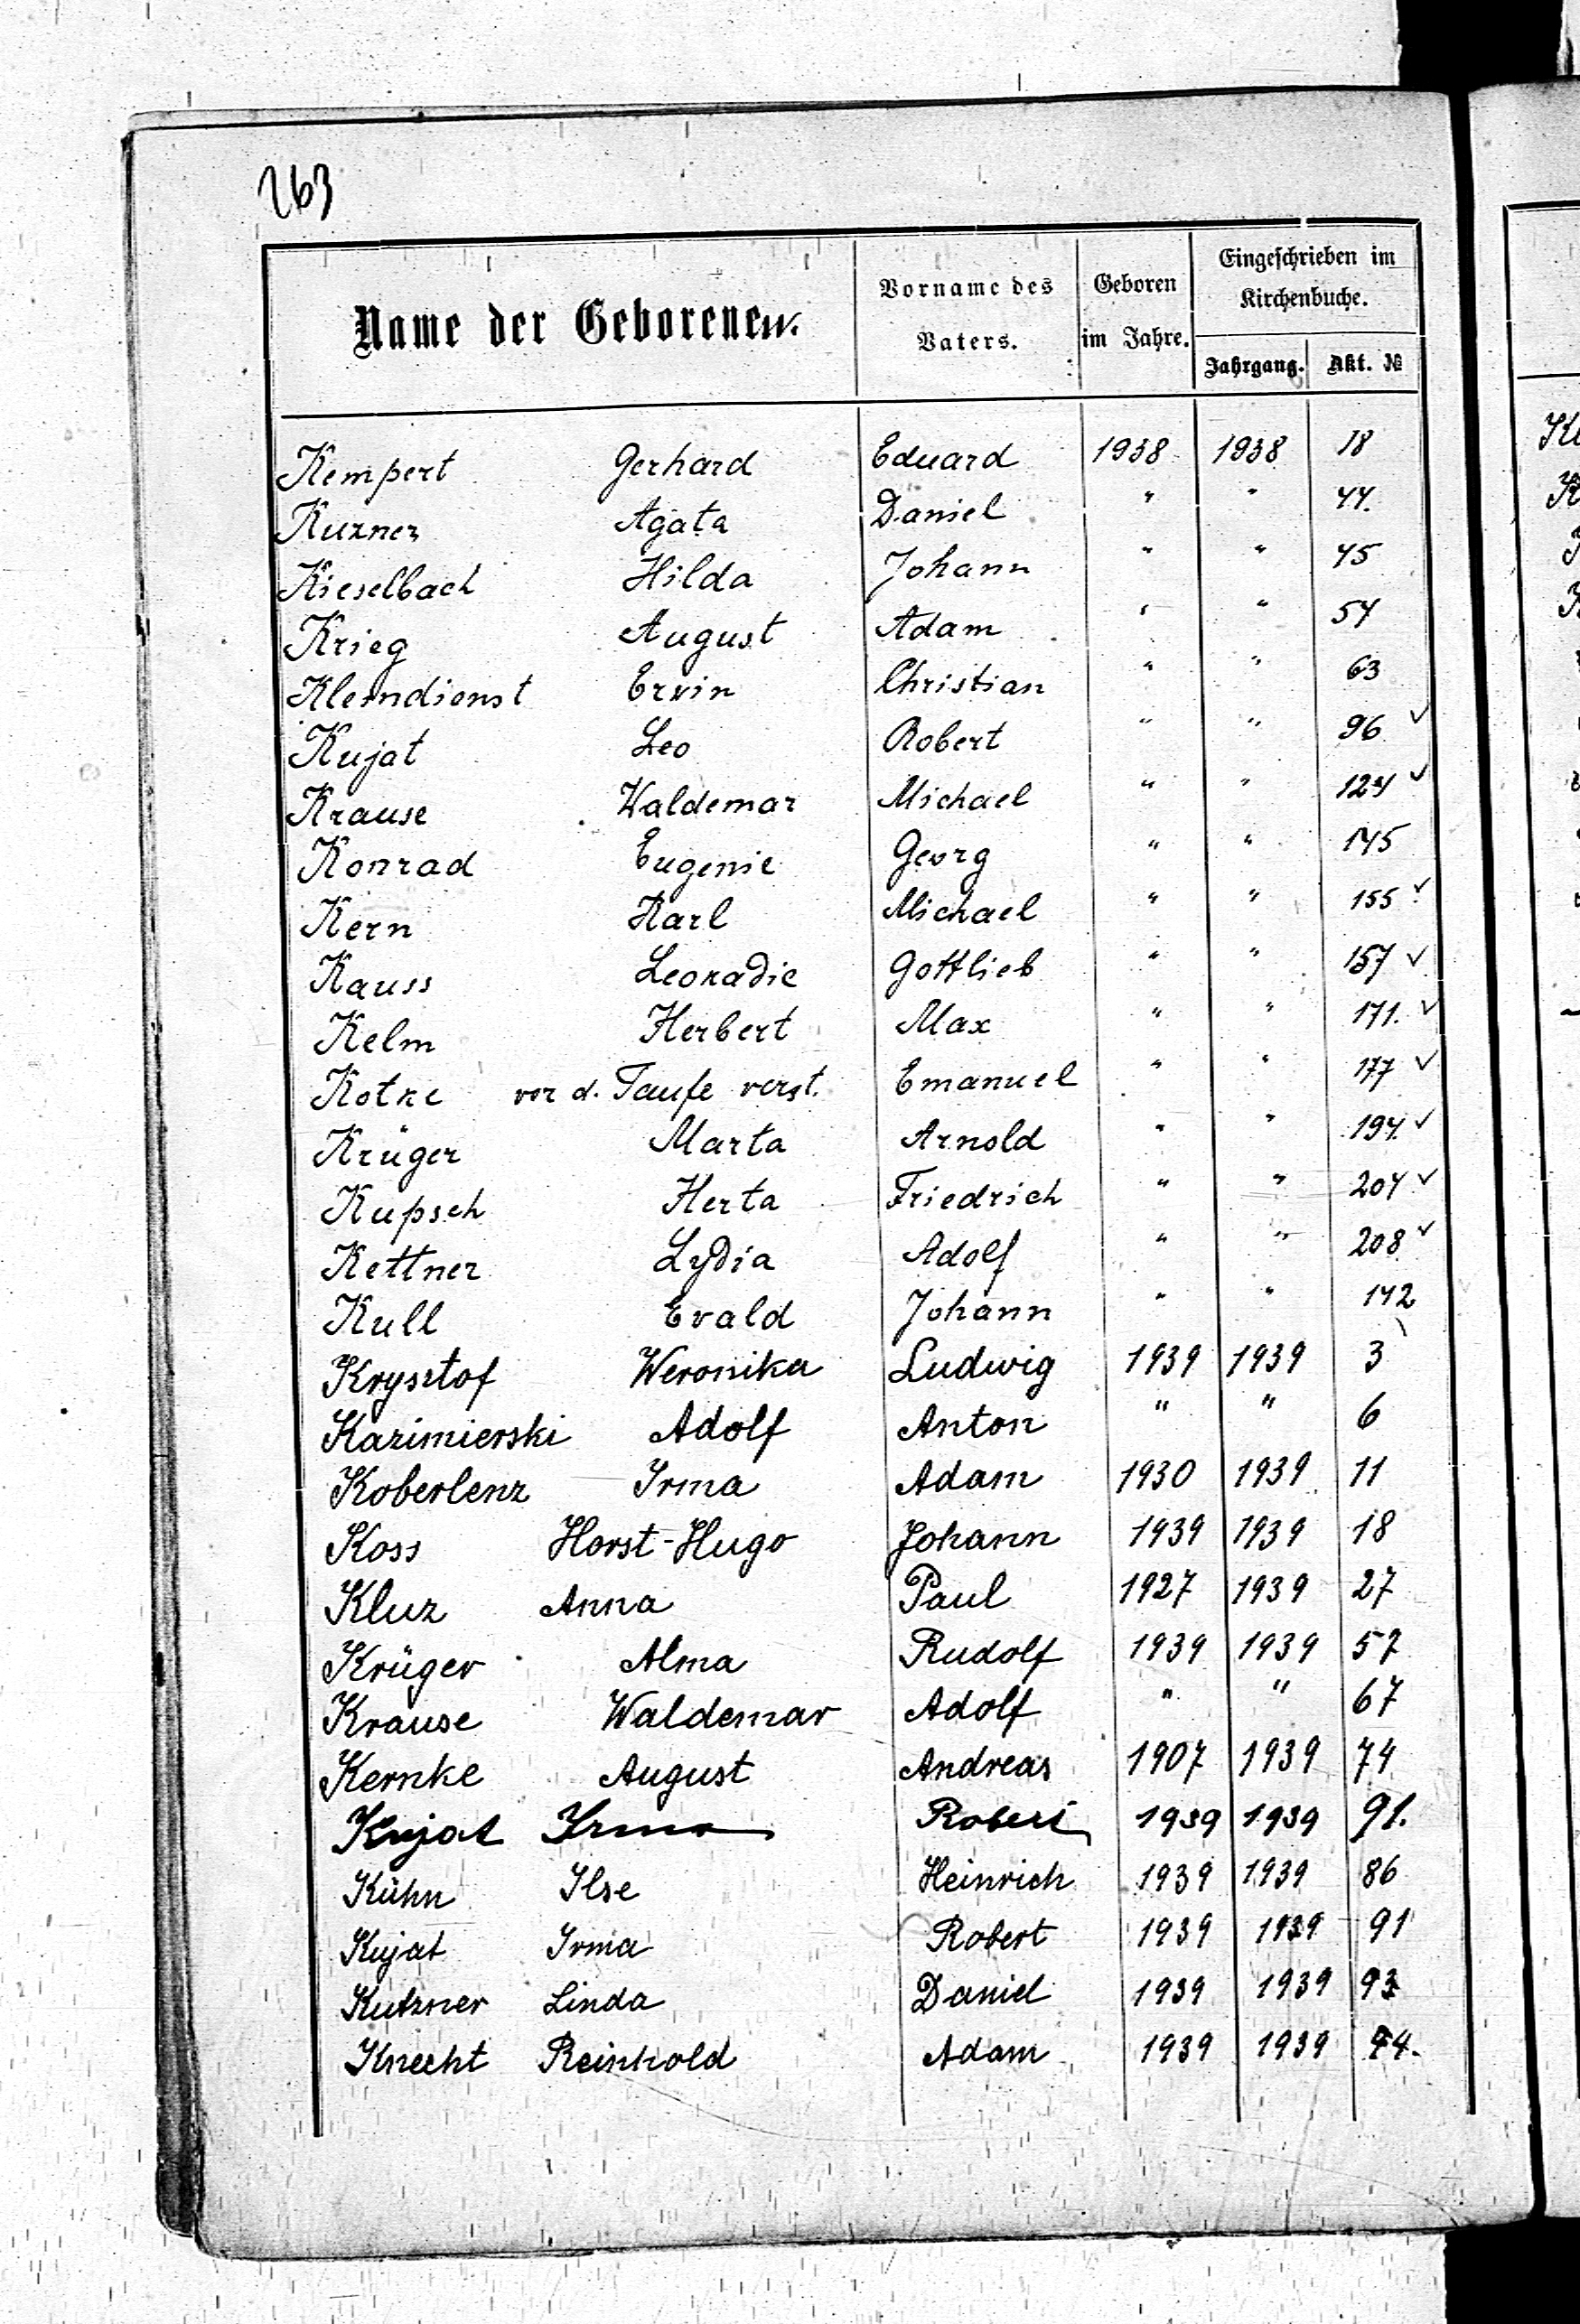 263
Name der Geborenen.
Vorname des Vaters.
Geboren im Jahre.
Eingeschrieben im Kirchenbuche.
Jahrgang. Akt. №
Kempert Gerhard Eduard 1938 1938 18
Kuzner Agata Daniel " " 44.
Kieselbach Hilda Johann " " 45
Krieg August Adam " " 54
Kleindienst Ervin Christian " " 63
Kujat Leo Robert " " 96 ✓
Krause Waldemar Michael " " 124 ✓
Konrad Eugenie Georg " " 145
Kern Karl Michael " " 155 ✓
Kauss Leokadie Gottlieb " " 157 ✓
Kelm Herbert Max " " 171. ✓
Kotke vor d. Taufe verst. Emanuel " " 177 ✓
Krüger Marta Arnold " " 194. ✓
Kupsch Herta Friedrich " " 204 ✓
Kettner Lydia Adolf " " 208 ✓
Kull Evald Johann " " 142
Krysztof Weronika Ludwig 1939 1939 3
Kazimierski Adolf Anton " " 6
Koberlenz Irma Adam 1930 1939 11
Koss Horst-Hugo Johann 1939 1939 18
Kluz Anna Paul 1927 1939 27
Krüger Alma Rudolf 1939 1939 57
Krause Waldemar Adolf " " 67
Kernke August Andreas 1907 1939 74
Kujat Irma Robert 1939 1939 91.
Kühn Ilse Heinrich 1939 1939 86
Kujat Irma Robert 1939 1939 91
Kutzner Linda Daniel 1939 1939 93
Knecht Reinhold Adam 1939 1939